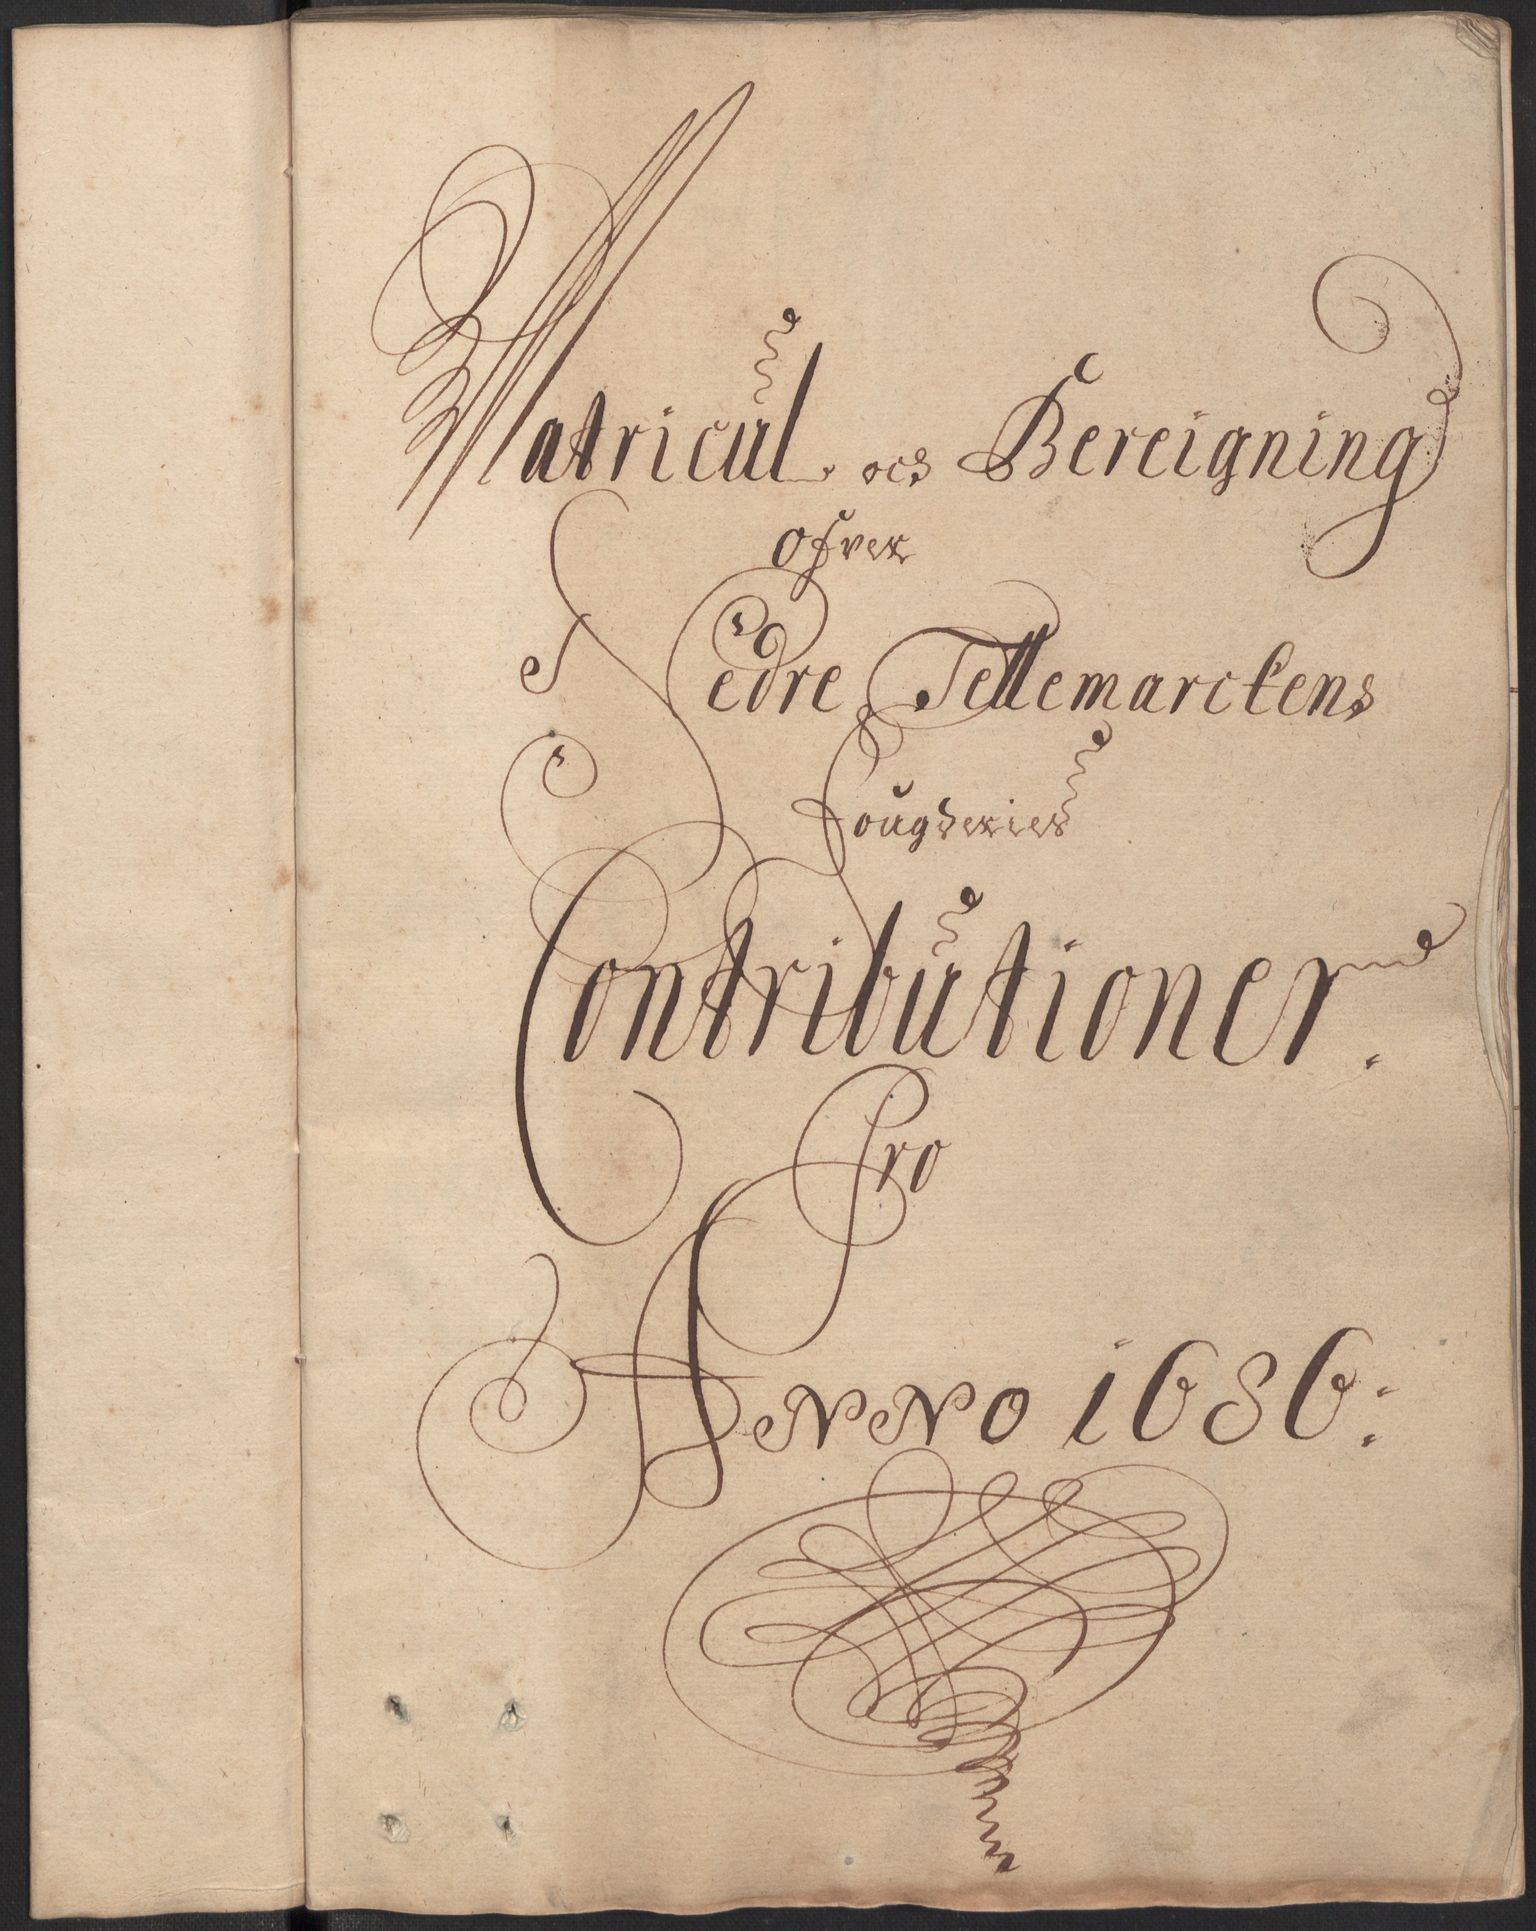 Matricul och Bereigning
ofver
Nedre Tellemarckens
Fougderies
Contributioner.
Pro
Anno 1686: